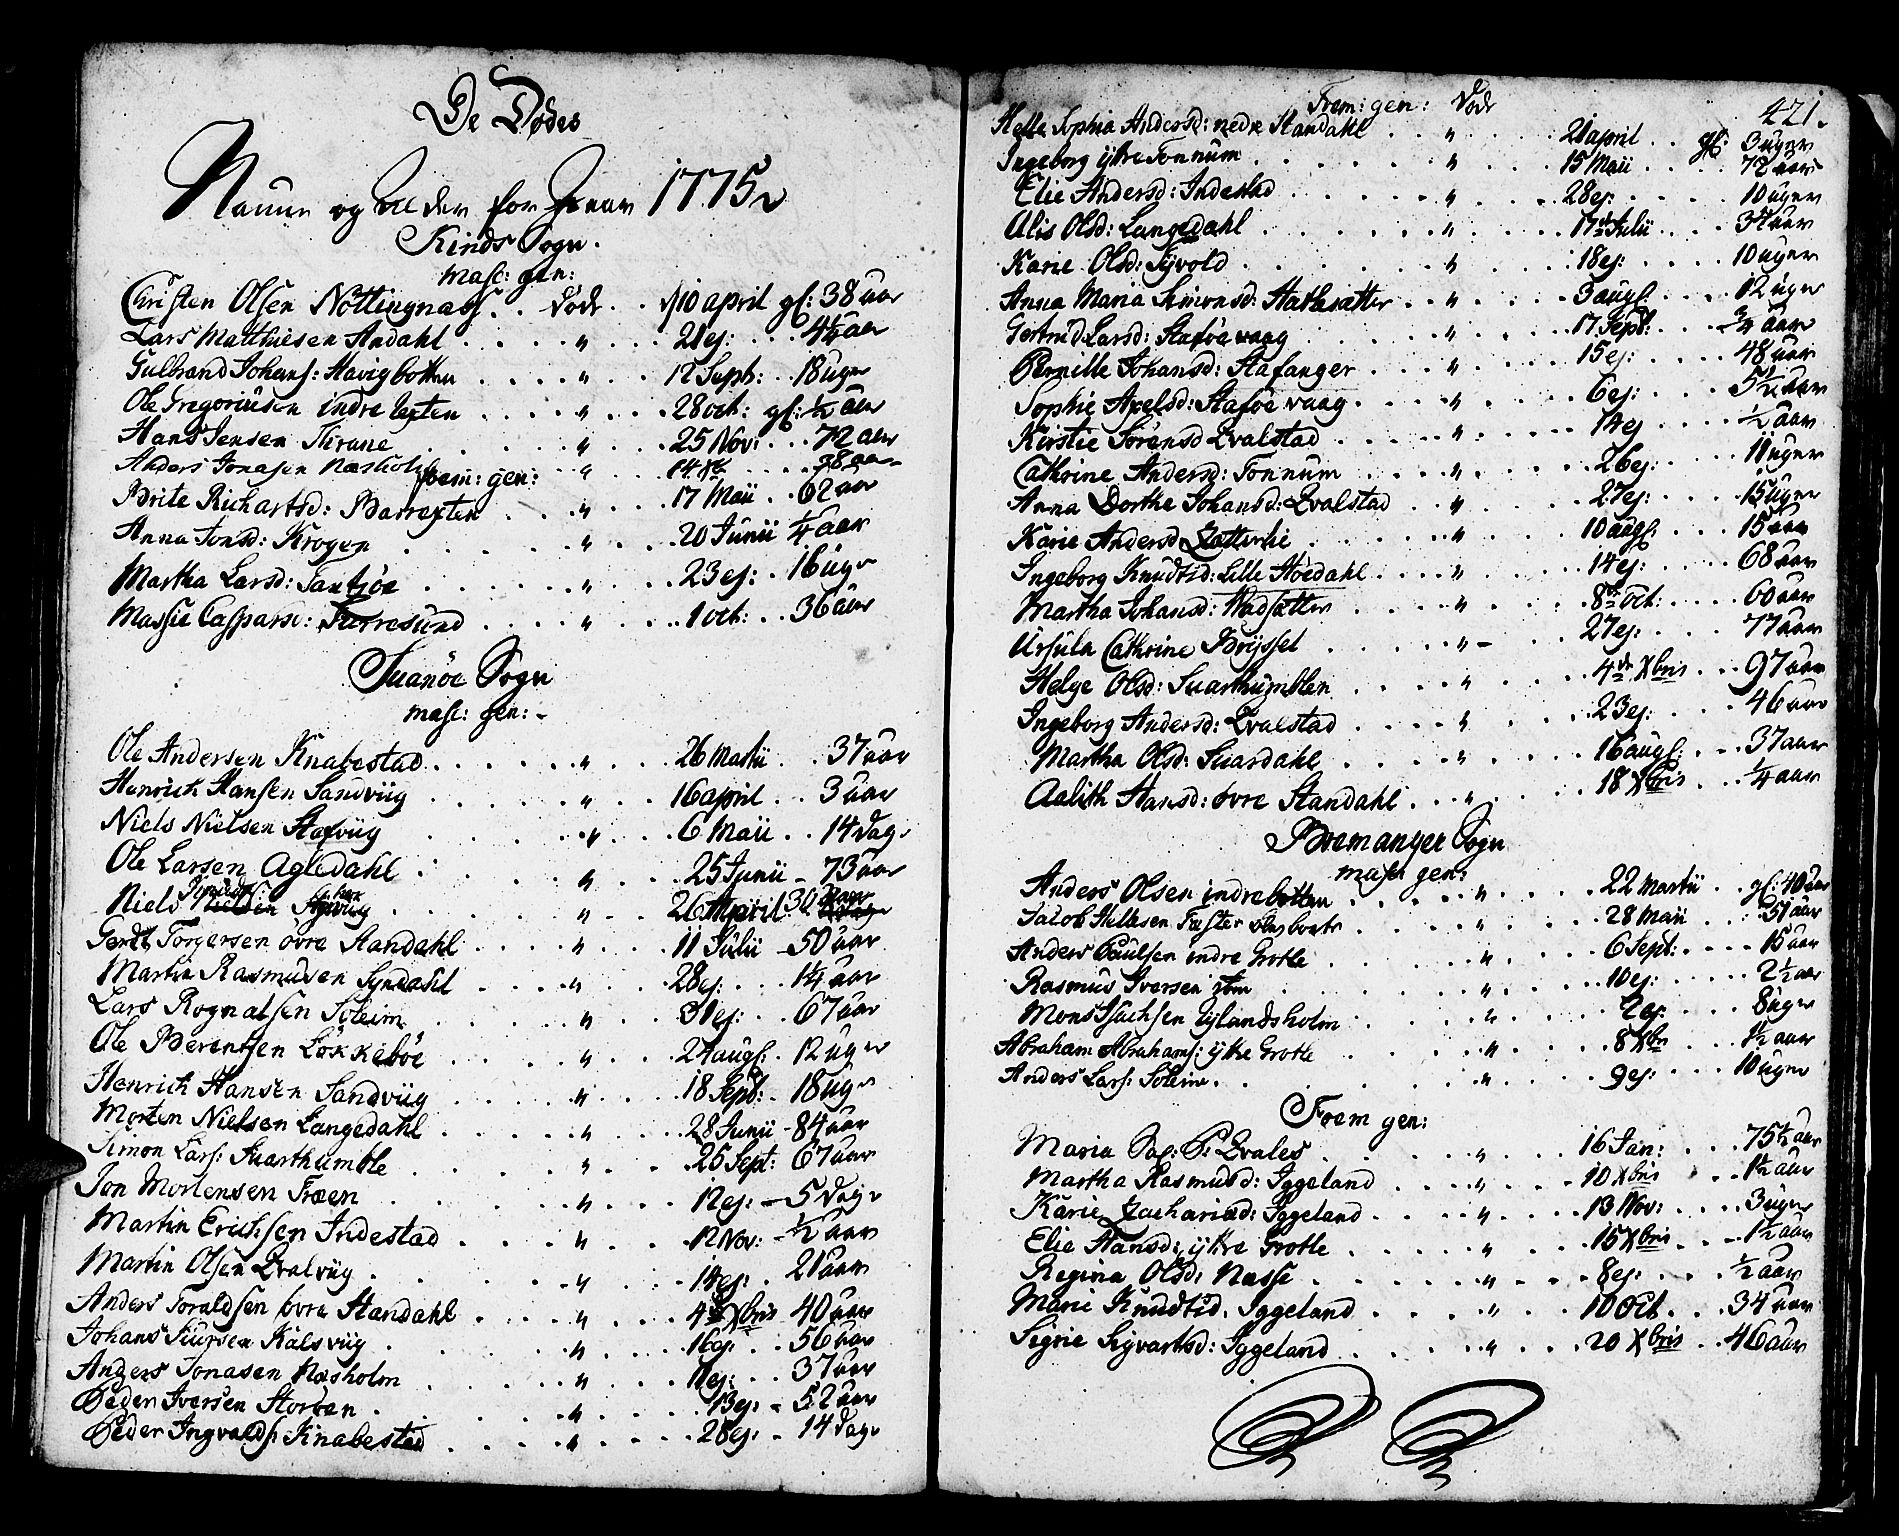 De Dødes
Naune og Alder for Jnar 1775
Kinds Sogn.
masc: gen:
Christen Olsen Nottingnæss.. døde.. d 10 april gl: 38 aar
Lars Matthiesen Andahl " 21 ej: 4½ aar
Gulbrand Johans: Havigbotten " 12 Sept: 18 uger
Ole Gregoriusen indre lexten " 28 oct: gl: ½ aar
Hans Jensen Thrane " 25 Nov: 72 aar
Anders Jonasen Næsholm " 14 Xbr 38 aar
foem: gen:
Brite Richartsd: Barrexten " 17 Maii 62 aar
Anna Jonsd: Krogen " 20 Junii ¼ aar
Martha Larsd: " 23 ej: 16 uger
Massie Caspersd: Furresund " 1 oct: 36 aar
Suanøe Sogn
masc: gen:
Ole Andersen Knabestad " 26 Martii 37 aar
Henrich Hansen Sandviig " 16 april 3 aar
Niels Nielsen " 6 Maii 14 Dage
Ole Larsen Agledahl " 25 Junii 73 aar
Niels " 26 April 30
Gerdt Torgersen øvre Standahl " 11 Julii 50 aar
Martin Rasmusen Syndahl " 28 ej: 1¼ aar
Lars Rognalsen Soleim " 31 ej: 67 aar
Ole Berentsen Løkkebøe " 24 augs: 12 uger
Henrich Hansen Sandviig " 18 Sept: 18 uger
Morten Nielsen Langedahl " 28 Junii 84 aar
Simon Lars: Suarthumble " 25 Sept: 67 aar
Jon Mortensen Træen " 12 ej: 5 Dage
Martin Erichsen Indestad " 12 Nov: ½ aar
Martin Olsen Qvalviig " 14 ej: 21 aar
Anders Toraldsen øvre Standahl " 4de Xbris 40 aar
Johans Siursen Kalsviig " 16 ej 56 aar
Anders Jonasen Næsholm " 11 ej: 37 aar
Peder Iversen Storøen " 13 ej: 52 aar
Peder Ingvalds: Knabestad " 28 ej: 14 Dage
421.
Foem: gen: Døde
Helle Sophia Andersd: nedre Standahl " 21 april gl: 3 uger
Ingeborg ijttre Tonnum " 15 Maii 72 aar
Elie Andersd: Indestad " 28 ej: 10 uger
Alis Olsd: Langedahl " 17de Julii 34 aar
Karie Olsd: Sijvold " 18 ej: 10 uger
Anna Maria Simonsd: Stathsætter " 3 augs: 12 uger
Gertrud Larsd: Staføe vaag " 17 Sept: ¾ aar
Pernille Johansd: Stafanger " 15 ej: 48 aar
Sophie Axelsd: Staføe vaag " 6 ej: 5½ aar
Kirstie Sørensd Qvalstad " 14 ej ½ aar
Cathrine Andersd: Tonnum " 26 ej: 11 uger
Anna Dorthe Johansd: Qvalstad " 27 ej: 15 uger
Karie Andersd Zætterlie " 10 augs: 15 aar
Ingeborg Knudtsd: Lille Høedahl " 14 ej: 68 aar
Martha Johansd: Hadsætter " 8de Oct: 60 aar
Ursula Cathrine Brijssel " 27 ej: 77 aar
Helge Olsd: Suarthumblen " 4de Xbris 97 aar
Ingeborg Andersd: Qvalstad " 23 ej: 46 aar
Martha Olsd: Suardahl " 16 augs: 37 aar
Aalith Hansd: øvre Standahl " 18 Xbris ¼ aar
Bremanger Sogn
masc: gen:
Anders Olsen indrebotten " 22 Martii gl: 40 aar
Jacob " 28 Maii 51 aar
Anders Paulsen indre Grotle " 6 Sept: 15 aar
Rasmus Iversen " 10 ej: 2½ aar
Mons Isachsen Ujlandsholm " 2 ej: 8 uger
Abraham Abrahams: ijttre Grotle " 8 Xbris 1½ aar
Anders Lars: Soleim " 9 ej: 10 uger
Foem gen:
Maria Qvales " 16 Jan: 75½ aar
Martha Rasmusd: Iggeland " 10 Xbris 1½ aar
Karie Zachariæd: Iggeland " 13 Nov: 3 uger
Elie Hansd: ijttre Grotle " 15 Xbris 1½ aar
Regina Olsd: Næsse " 8 ej: ½ aar
Marie Knudtsd. Iggeland " 10 Oct. 34 aar
Sigrie Sigvartsd: Iggeland " 20 Xbris 46 aar